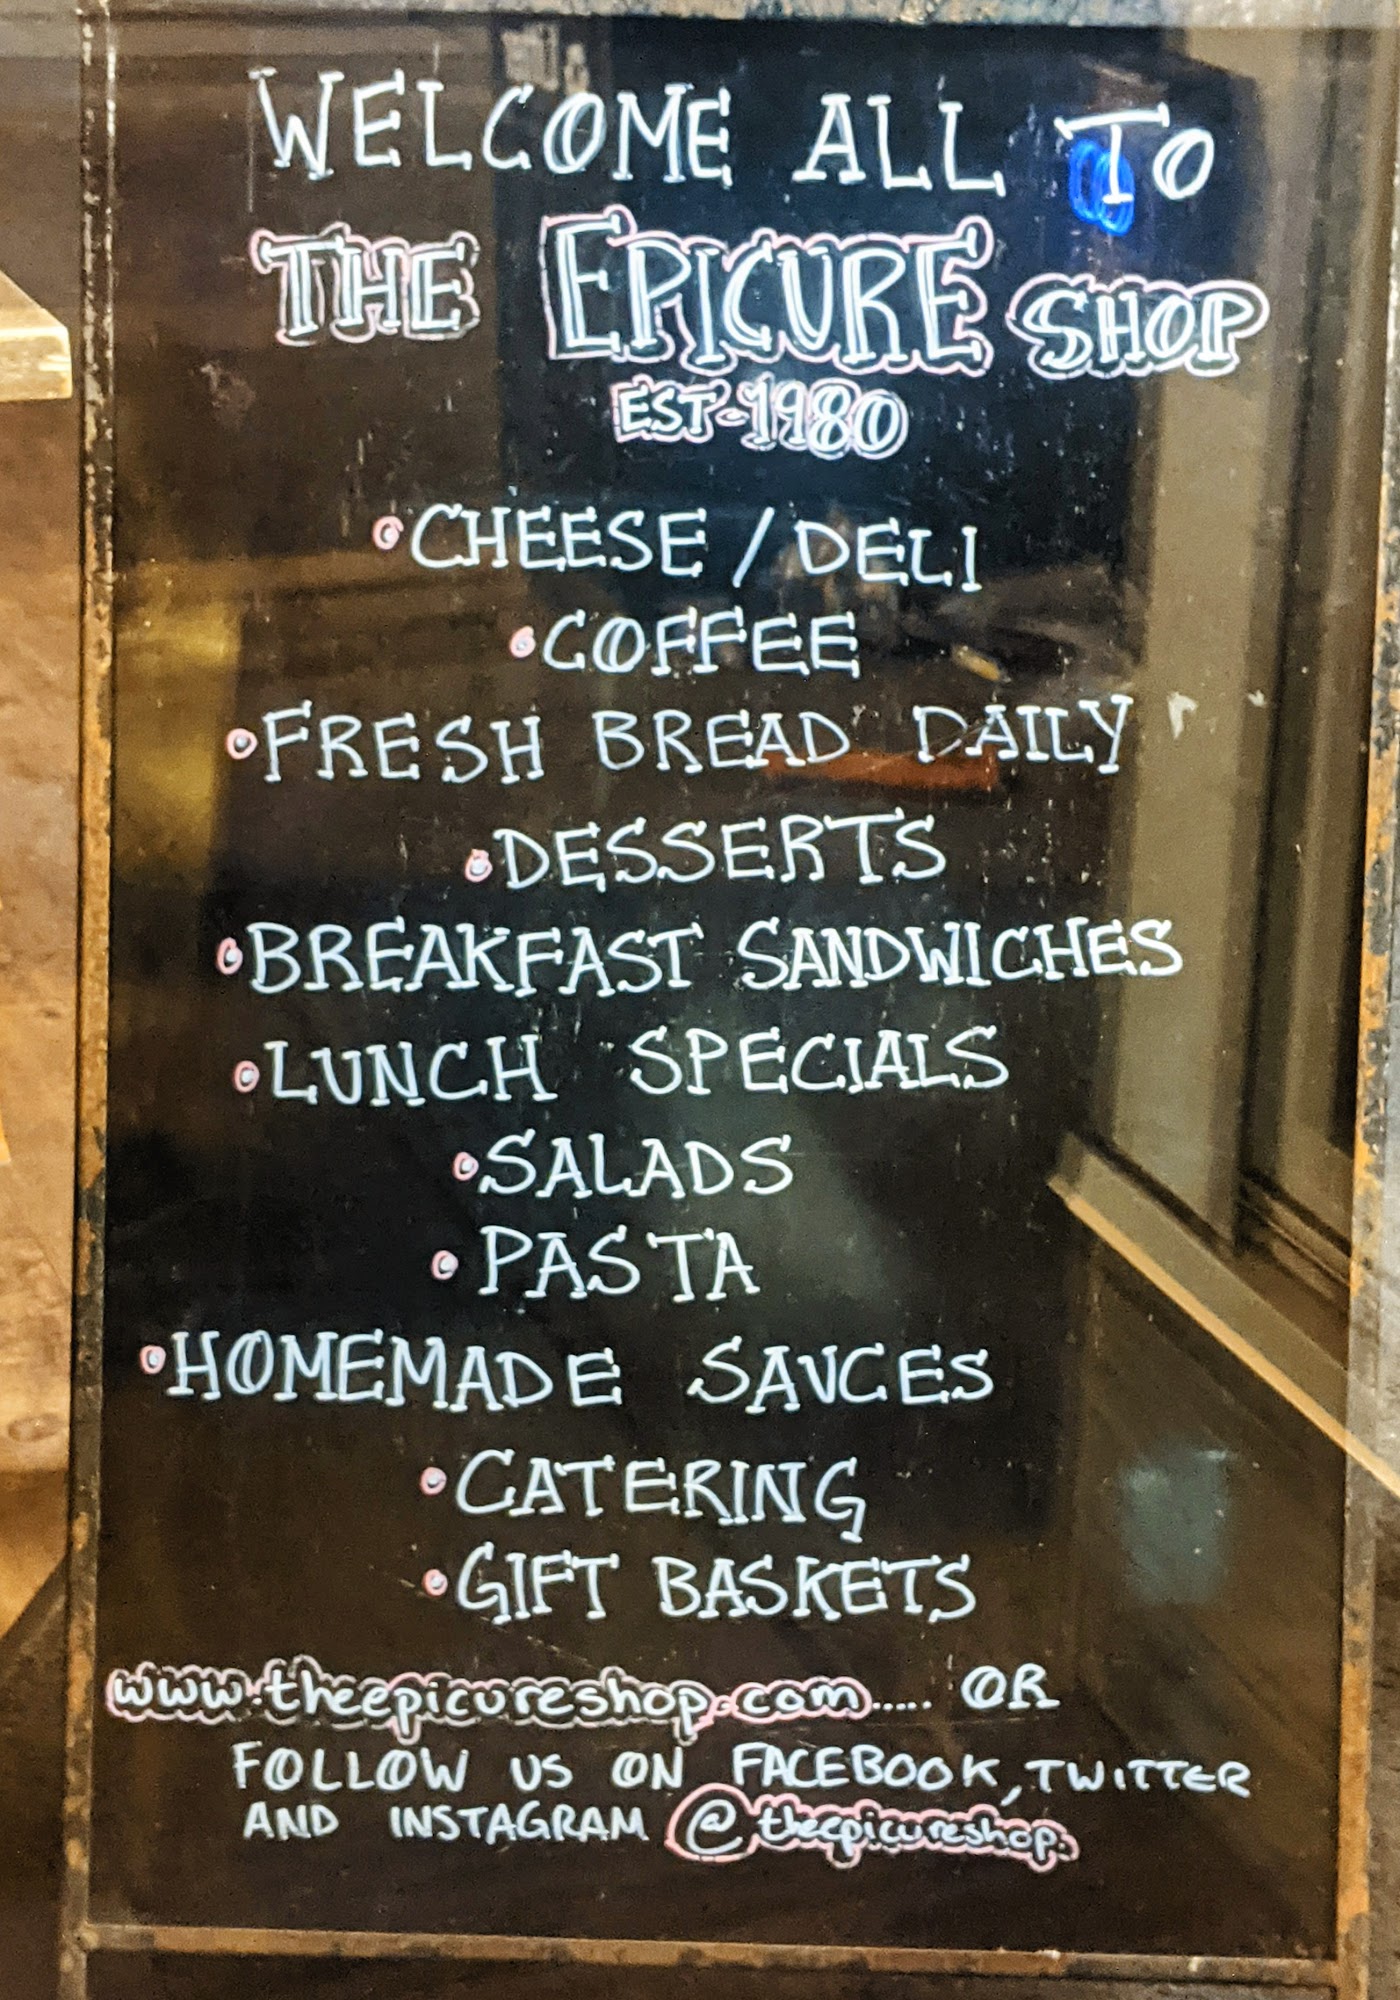 WELCOME ALL TO
THE EPICURE SHOP
EST-1980
•CHEESE/DELI
•COFFEE
•FRESH BREAD DAILY
•DESSERTS
•BREAKFAST SANDWICHES
•LUNCH SPECIALS
•SALADS
•PASTA
•HOMEMADE SAUCES
•CATERING
•GIFT BASKETS
www.theepicureshop.com..... OR
FOLLOW US ON FACEBOOK, TWITTER
AND INSTAGRAM @theepicureshop.